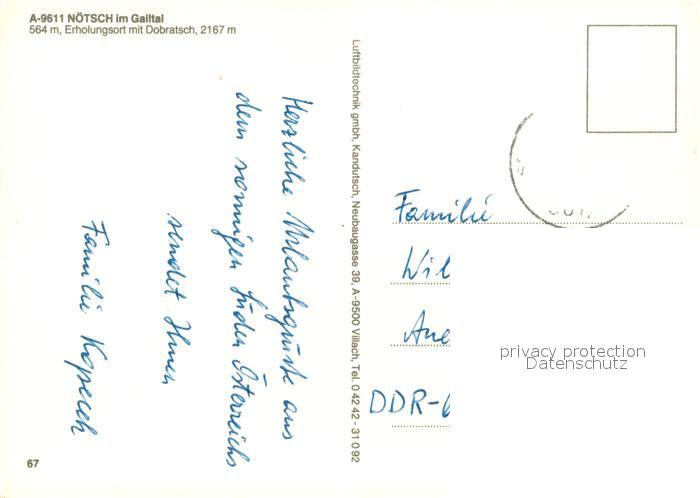 A-9611 NÖTSCH im Gailtal
564 m, Erholungsort mit Dobratsch, 2167 m
Herzliche Urlaubsgrüße aus
dem sonnigen Süden Österreichs
sendet Ihnen
Familie
Luftbildtechnik gmbh, Kandutsch, Neubaugasse 39, A-9500 Villach, Tel. 0 42 42 - 31 0 92
Familie
Wil
Ane
DDR-6
privacy protection
Datenschutz
67